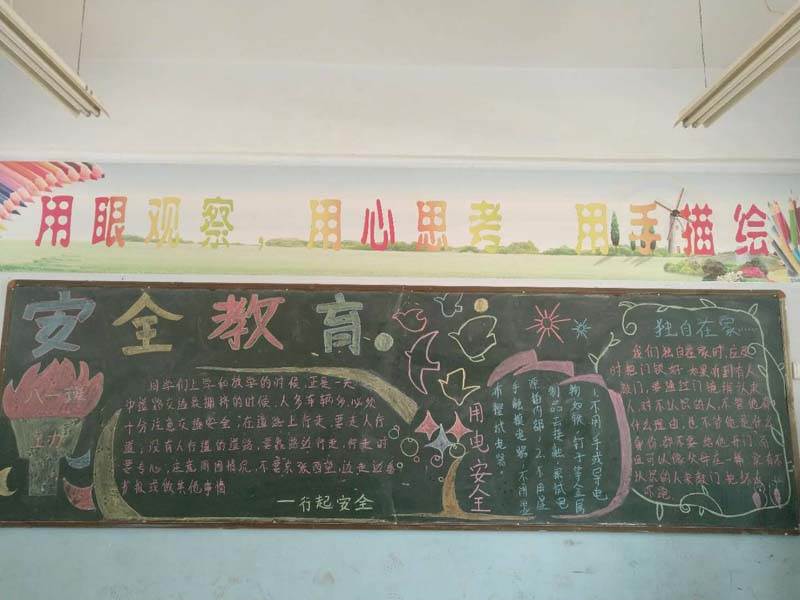 用眼观察，用心思考 用手描绘
安全教育
八一班
主办
同学们上学和放学的时候,正是一天
中道路交通最拥挤的时候,人多车辆多,必须
十分注意交通安全,在道路上行走,要走人行
道,没有人行道的道路,要靠路边行走,行走时
要专心,注意周围情况,不要东张西望,边走边看
书报或做其他事情
一行起安全
用电安全
1.不用手或导电
物如铁钉子等金属
制品去接触、探试电
源插座内部,2.不用湿
手触摸电器,不用湿
布擦拭电器。
独自在家……
我们独自在家时,应
时把门锁好.如果有人
敲门,要通过门镜
人,对不认识的人,不管他有
什么理由,也不管他是什么
身份都不要给他开门
认识的人来敲门